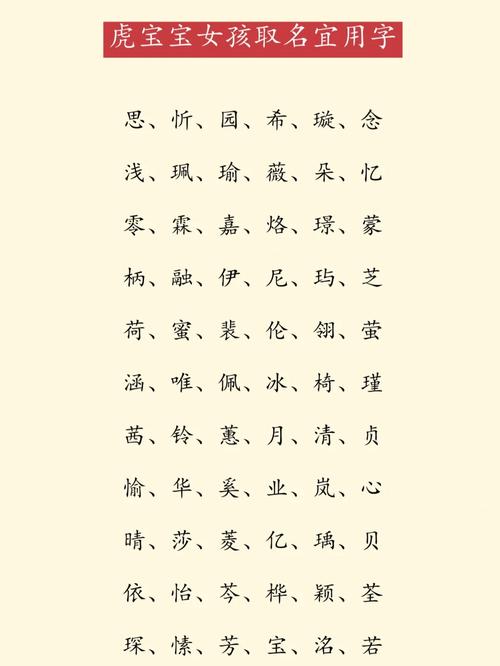 虎宝宝女孩取名宜用字
思、忻、园、希、璇、念
浅、珮、瑜、薇、朵、忆
零、霖、嘉、烙、璟、蒙
柄、融、伊、尼、玙、芝
荷、蜜、裴、伦、翎、萤
涵、唯、佩、冰、椅、瑾
茜、铃、蕙、月、清、贞
愉、华、奚、业、岚、心
晴、莎、菱、亿、瑀、贝
依、怡、芩、桦、颖、荃
琛、愫、芳、宝、洺、若